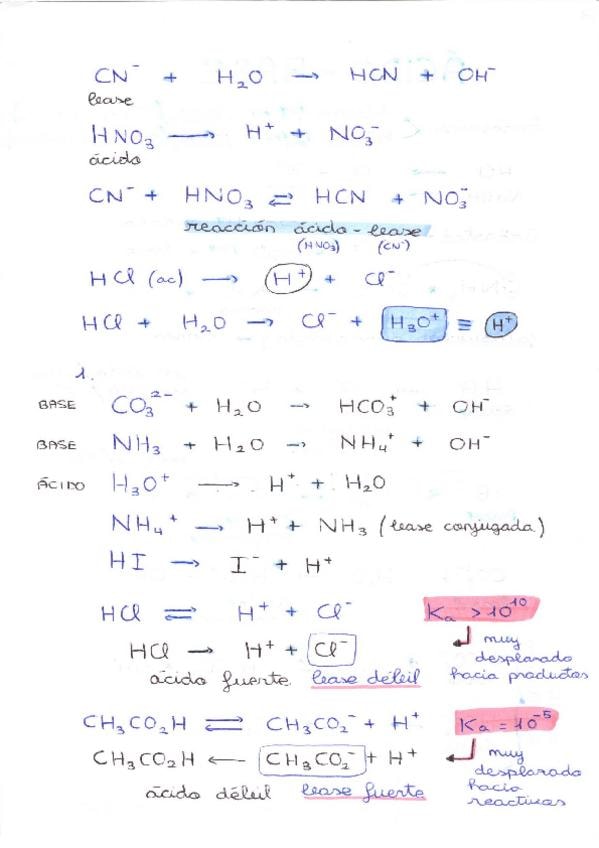 CN⁻ + H₂O → HCN + OH⁻
base
HNO₃ → H⁺ + NO₃⁻
ácido
CN⁻ + HNO₃ ⇌ HCN + NO₃⁻
reacción ácido-base
(HNO₃) (CN⁻)
HCl (ac) → H⁺ + Cl⁻
HCl + H₂O → Cl⁻ + H₃O⁺ ≡ H⁺
1.
BASE CO₃²⁻ + H₂O → HCO₃⁺ + OH⁻
BASE NH₃ + H₂O → NH₄⁺ + OH⁻
ÁCIDO H₃O⁺ → H⁺ + H₂O
NH₄⁺ → H⁺ + NH₃ (base conjugada)
HI → I⁻ + H⁺
HCl ⇌ H⁺ + Cl⁻ Ka > 10¹⁰
HCl → H⁺ + Cl⁻ muy
desplazado
ácido fuerte base débil hacia productos
CH₃CO₂H ⇌ CH₃CO₂⁻ + H⁺ Ka = 10⁻⁵
CH₃CO₂H ← CH₃CO₂⁻ + H⁺ muy
desplazado
ácido débil base fuerte hacia
reactivos